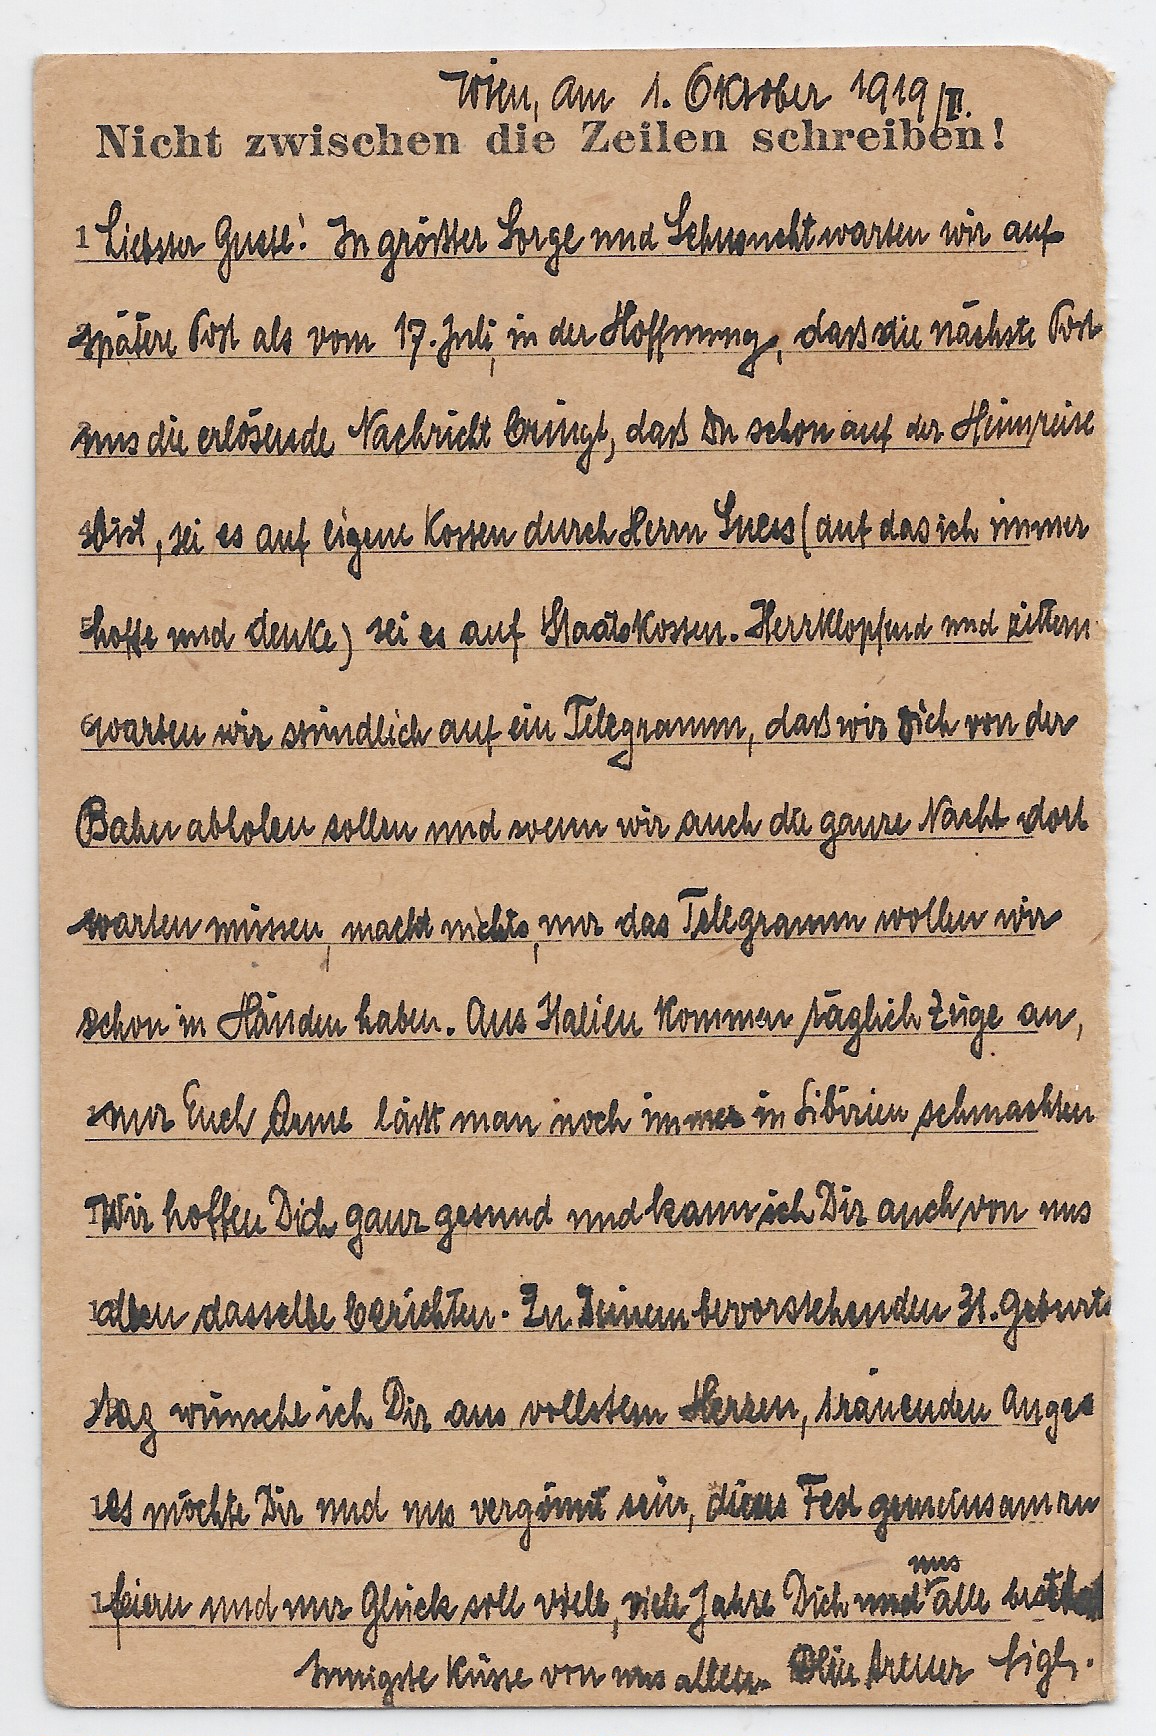 Wien, am 1. Oktober 1919/II.
Nicht zwischen die Zeilen schreiben!
1 Liebster Gustl! In größter Sorge und Sehnsucht warten wir auf
spätere Post als vom 17. Juli, in der Hoffnung, daß die nächste Post
uns die erlösende Nachricht bringt, daß Du schon auf der Heimreise
bist, sei es auf eigene Kosten durch Herrn (auf das ich immer
5 hoffe und denke) sei es auf Staatskosten. Herzklopfend und zittern
6 warten wir stündlich auf ein Telegramm, daß wir Dich von der
Bahn abholen sollen und wenn wir auch die ganze Nacht dort
warten müssen, macht nichts, nur das Telegramm wollen wir
schon in Händen haben. Aus Italien kommen täglich Züge an,
nur Euch Arme läßt man noch immer in Sibirien schmachten
1 Wir hoffen Dich ganz gesund und kann ich Dir auch von uns
1 allen dasselbe berichten. Zu Deinem bevorstehenden 31. Geburts
tag wünsche ich Dir aus vollstem Herzen, tränenden Auges
1 es möchte Dir und uns vergönnt sein, dieses Fest gemeinsam zu
uns
1 feiern und nur Glück soll viele, viele Jahre Dich und alle
Innigste Küsse von uns allen. Dein treuer Sigl.